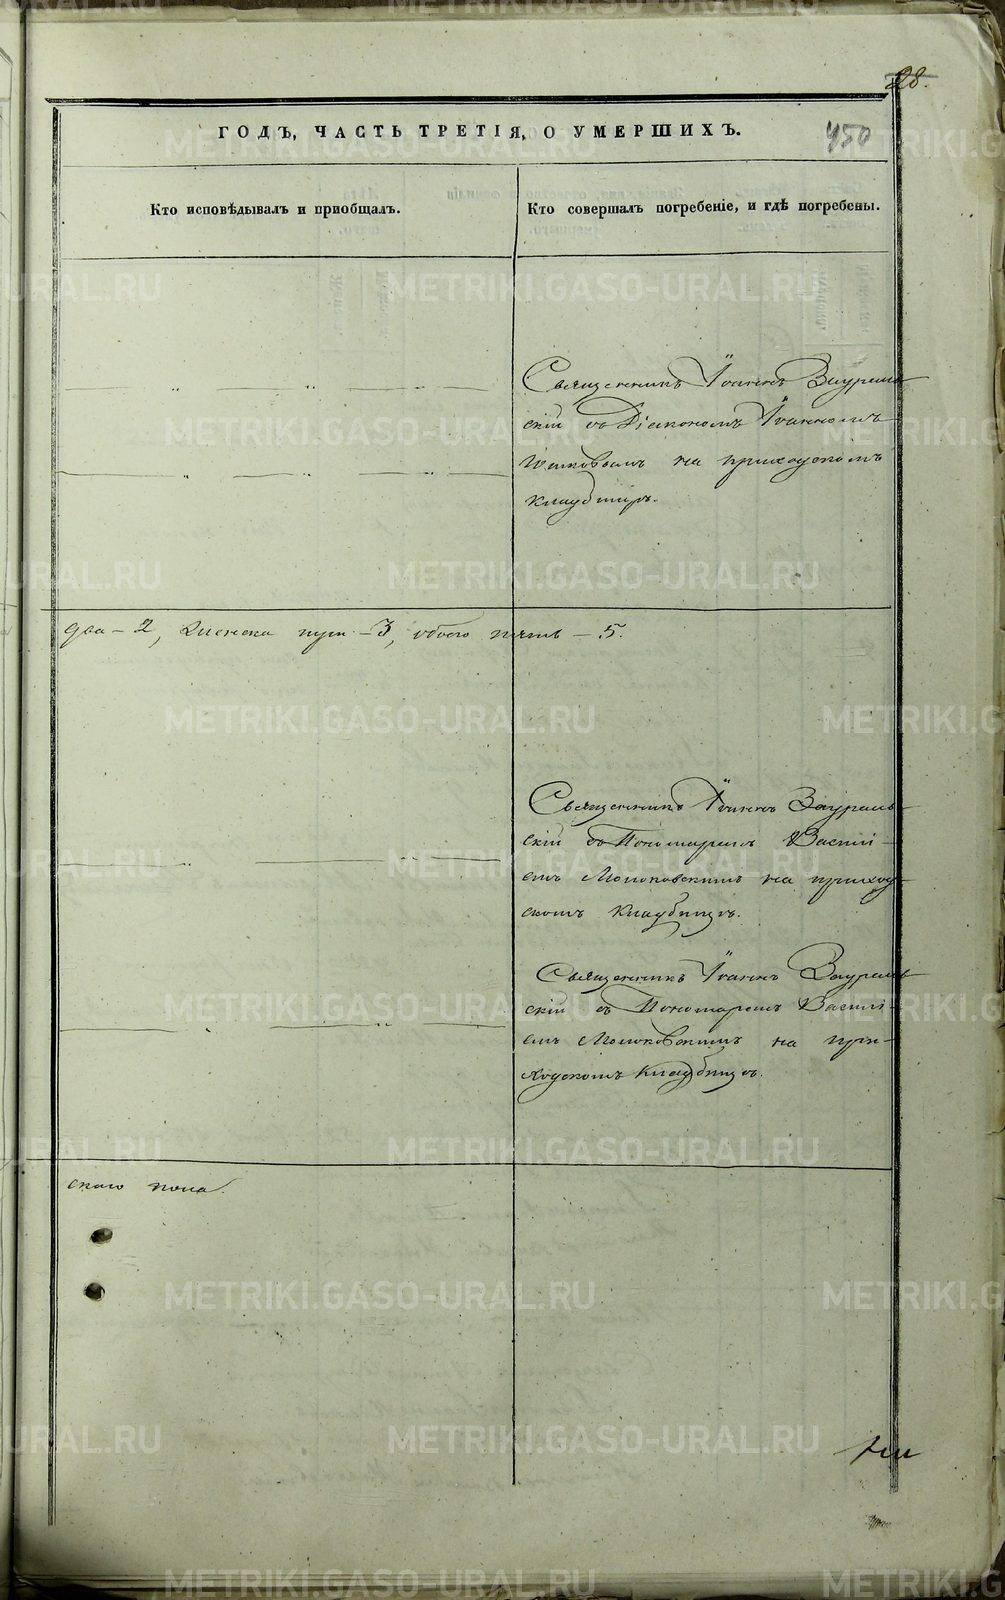 28.
ГОДЪ, ЧАСТЬ ТРЕТІЯ, О УМЕРШИХЪ.
450
Кто исповѣдывалъ и пріобщалъ.
Кто совершалъ погребеніе, и гдѣ погребены.
Священникъ Іоаннъ Заураль
скій съ Діакономъ Іоанномъ
на приходскомъ
кладбищѣ.
два – 2, женска пола – 3, обоего пять – 5.
Священникъ Іоаннъ Заураль
скій съ Пономаремъ Васілі-
емъ на приход
скомъ кладбищѣ.
Священникъ Іоаннъ Заураль
скій съ Пономаремъ Васілі-
емъ на при-
ходскомъ кладбищѣ.
скаго пола.
METRIKI.GASO-URAL.RU